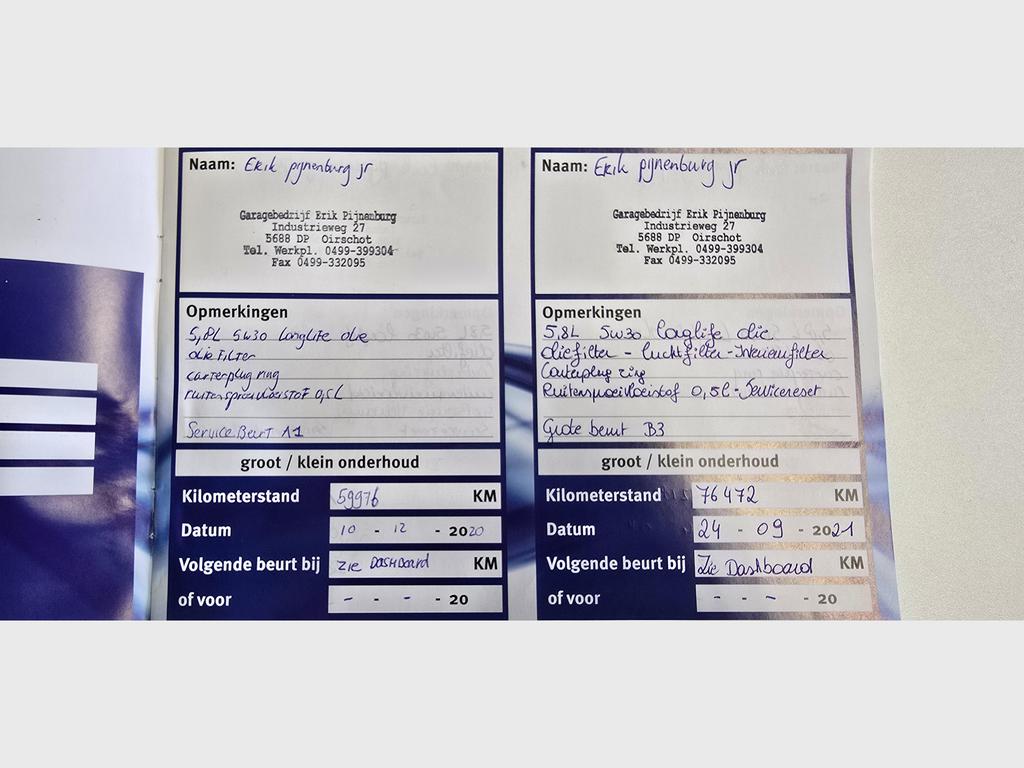 Naam: Erik pijnenburg jr
Garagebedrijf Erik Pijnenburg
Industrieweg 27
5688 DP Oirschot
Tel. Werkpl. 0499-399304
Fax 0499-332095
Opmerkingen
5,8L 5w30 longlife olie
olie Filter
carterplug ring
ruitensproeivloeistof 0,5L
Service Beurt A1
groot / klein onderhoud
Kilometerstand 59976 KM
Datum 10 - 12 - 2020
Volgende beurt bij zie DASHBoard KM
of voor - - - - 20
Naam: Erik pijnenburg jr
Garagebedrijf Erik Pijnenburg
Industrieweg 27
5688 DP Oirschot
Tel. Werkpl. 0499-399304
Fax 0499-332095
Opmerkingen
5,8L 5w30 longlife olie
oliefilter - luchtfilter - Interieurfilter
Carterplug ring
Ruitensproeivloeistof 0,5l - Servicereset
Grote beurt B3
groot / klein onderhoud
Kilometerstand 76472 KM
Datum 24 - 09 - 2021
Volgende beurt bij Zie Dashboard KM
of voor - - - - 20